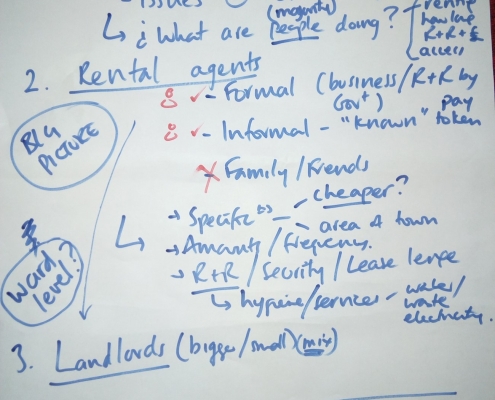 - Issues
(majority)
↳ ¿ What are people doing?
renting
how long
R+R+£
access
2. Rental agents
✓ - Formal (business/R+R by Gov^t)
✓ - Informal - "known" pay token
✗ - Family/Friends
BIG PICTURE
cheaper?
→ Specific
area of town
→ Amounts/frequency.
→ R+R/Security/Lease
↳ hygiene/services - water/
waste
electricity.
ward level?
3. Landlords (bigger/small)(mix)